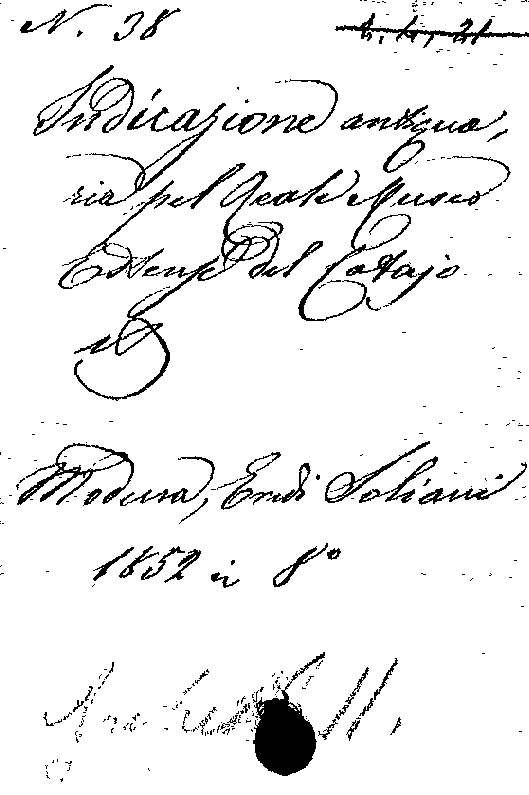 N. 38 4. 4. 21
Indicazione antiqua,
ria pel Reale Museo
Estense del Catajo
Modena, Eredi Soliani
1852 in 8°